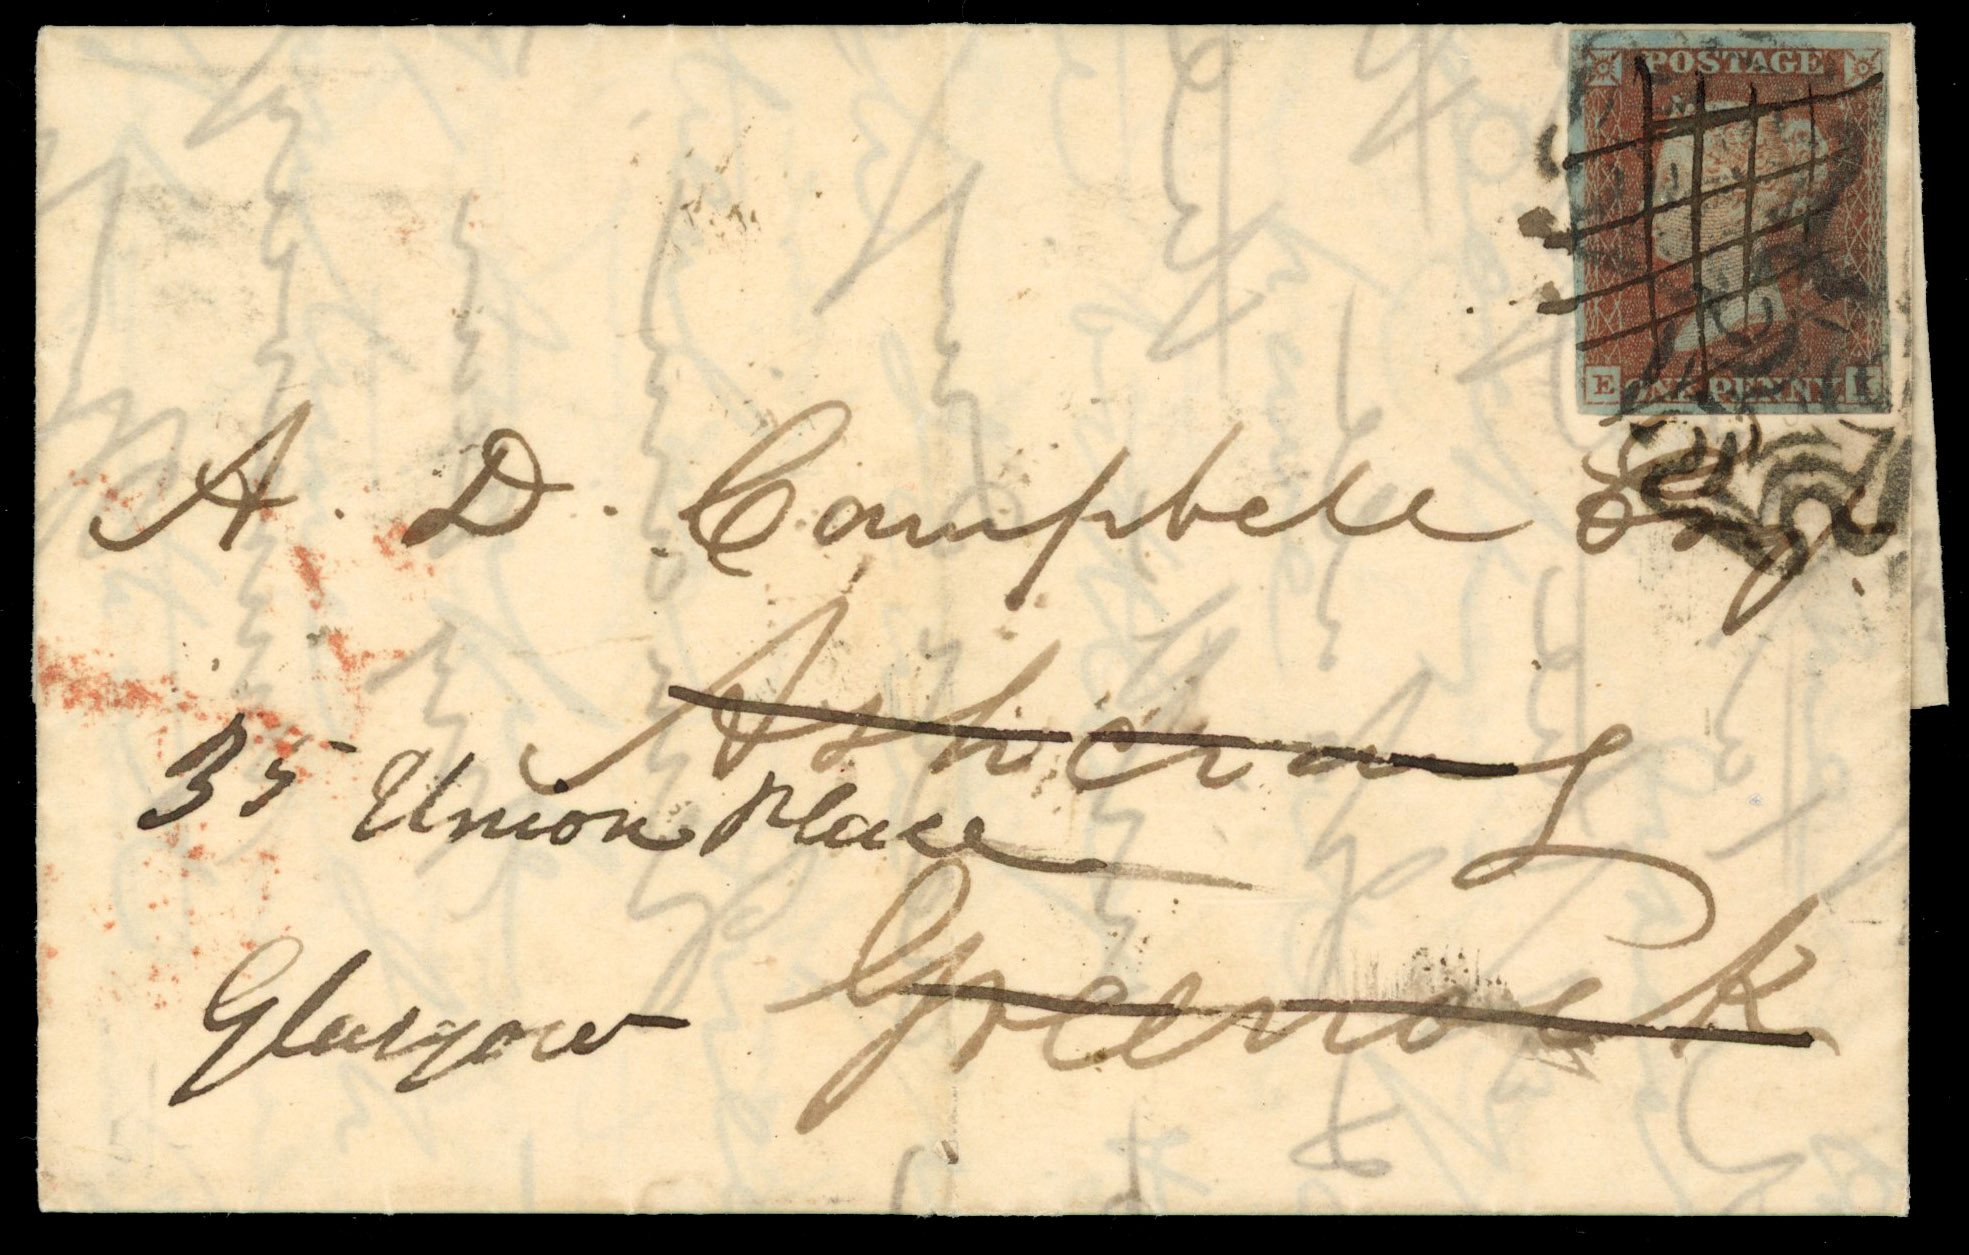 POSTAGE
E ONE PENNY
A. D. Campbell Esqr
Ashcraig
35 Union Place
Greenock
Glasgow